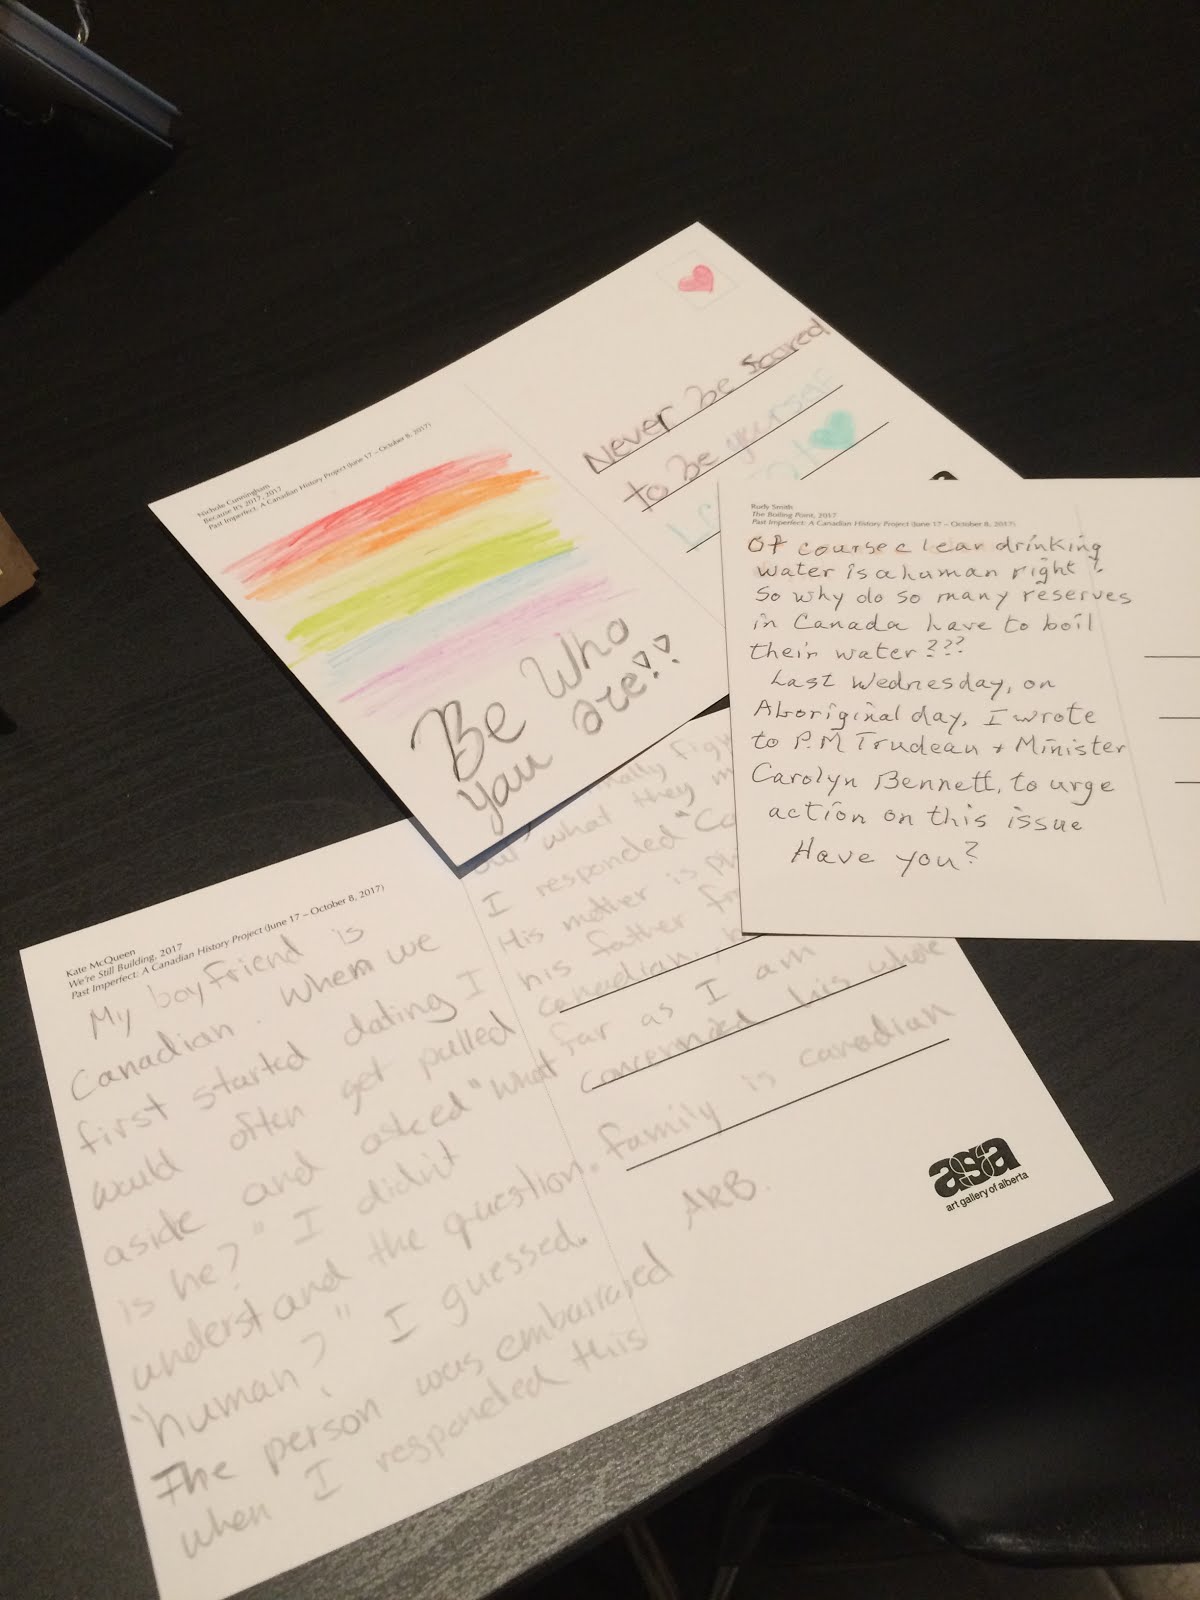 Nichole Cunningham
Because It's 2017, 2017
Past Imperfect: A Canadian History Project (June 17 – October 8, 2017)
Be Who
you are!!
Never be scared
to be yourself
Rudy Smith
The Boiling Point, 2017
Past Imperfect: A Canadian History Project (June 17 – October 8, 2017)
Of course clean drinking
water is a human right!
So why do so many reserves
in Canada have to boil
their water???
Last Wednesday, on
Aboriginal day, I wrote
to P.M Trudeau + Minister
Carolyn Bennett, to urge
action on this issue
Have you?
Kate McQueen
We're Still Building, 2017
Past Imperfect: A Canadian History Project (June 17 – October 8, 2017)
My boyfriend is
Canadian. When we
first started dating I
would often get pulled
aside and asked "what
is he?" I didn't
understand the question.
"human?" I guessed.
The person was embarrased
when I responeded this
out what they
I responded
His mother is
his father
Canadian,
far as I am
concerned his whole
family is canadian
ARB.
aga
art gallery of alberta